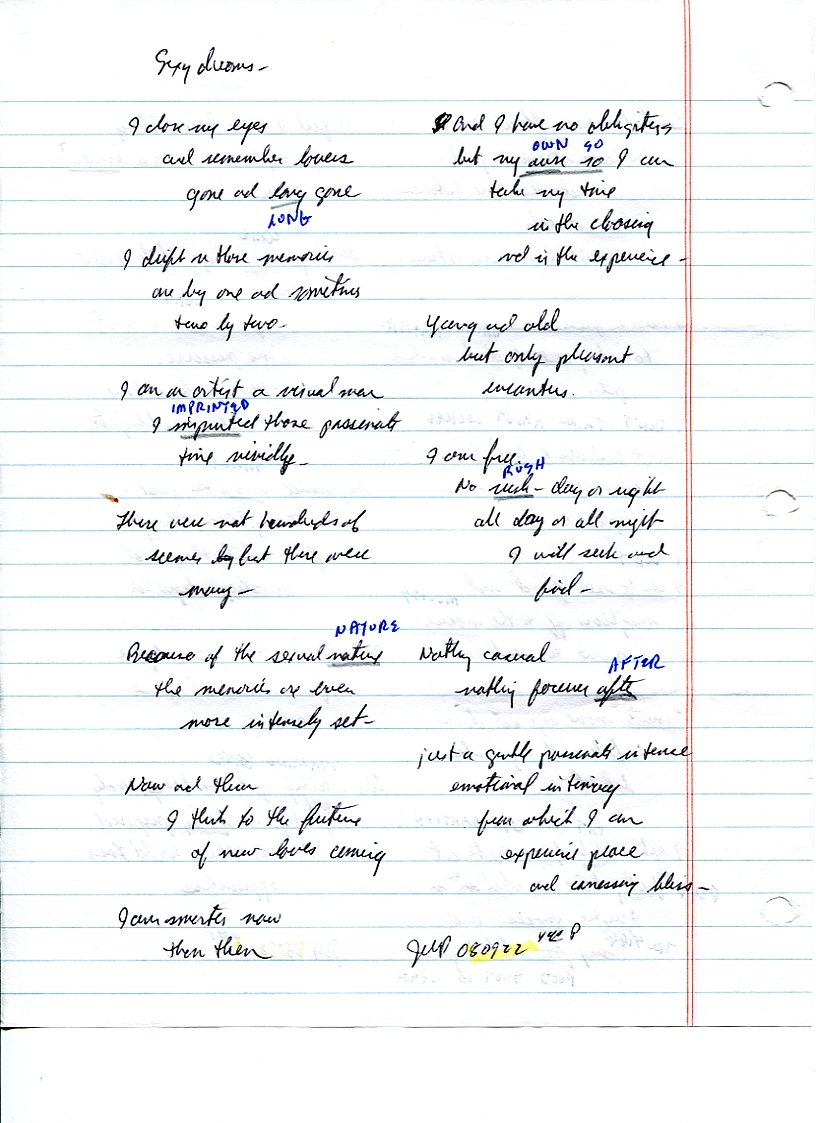 Sexy dreams-
I close my eyes
and remember lovers
gone and long gone
LONG
I drift in those memories
one by one and sometimes
two by two-
I am an artist a visual man
IMPRINTED
I imprinted those passionate
time vividly-
There were not hundreds of
scenes but there were
many-
NATURE
Because of the sexual nature
the memories are even
more intensely set-
Now and then
I think to the future
of new loves coming
I am smarter now
then then
And I have no obligations
OWN SO
but my own so I can
take my time
in the choosing
and in the experience-
Young and old
but only pleasant
encounters.
I am free.
RUSH
No rush- day or night
all day or all night
I will seek and
find-
Nothing casual
AFTER
nothing forever after
just a gentle passionate intense
emotional intimacy
from which I can
experience peace
and caressing bliss-
080922